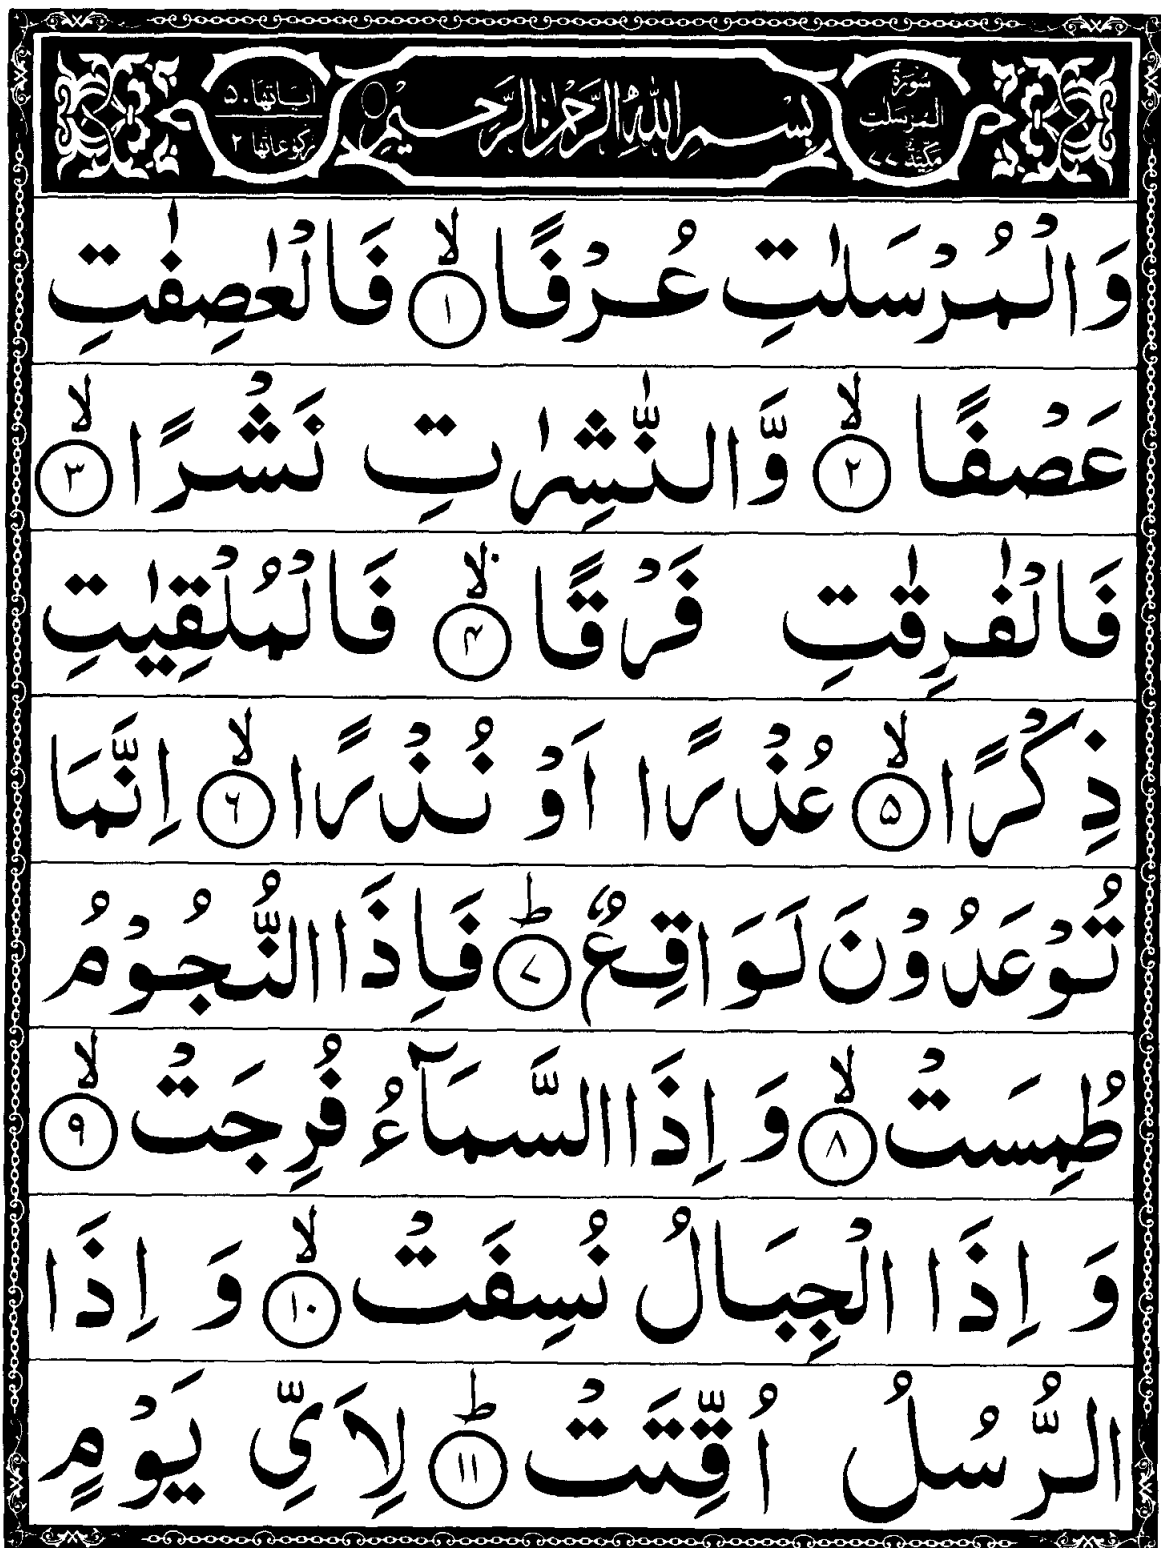 سُوْرَةُ
الْمُرْسَلٰتِ
مَكِّيَّةٌ ٧٧
بِسْمِ اللّٰهِ الرَّحْمٰنِ الرَّحِيْمِ
اٰيَاتُهَا ٥٠
رُكُوْعَاتُهَا ٢
وَالْمُرْسَلٰتِ عُرْفًا ۙ ﴿١﴾ فَالْعٰصِفٰتِ
عَصْفًا ۙ ﴿٢﴾ وَّالنّٰشِرٰتِ نَشْرًا ۙ ﴿٣﴾
فَالْفٰرِقٰتِ فَرْقًا ۙ ﴿۴﴾ فَالْمُلْقِيٰتِ
ذِكْرًا ۙ ﴿۵﴾ عُذْرًا اَوْ نُذْرًا ۙ ﴿۶﴾ اِنَّمَا
تُوْعَدُوْنَ لَوَاقِعٌ ؕ ﴿۷﴾ فَاِذَا النُّجُوْمُ
طُمِسَتْ ۙ ﴿٨﴾ وَ اِذَا السَّمَآءُ فُرِجَتْ ۙ ﴿٩﴾
وَ اِذَا الْجِبَالُ نُسِفَتْ ۙ ﴿١٠﴾ وَ اِذَا
الرُّسُلُ اُقِّتَتْ ؕ ﴿١١﴾ لِاَيِّ يَوْمٍ